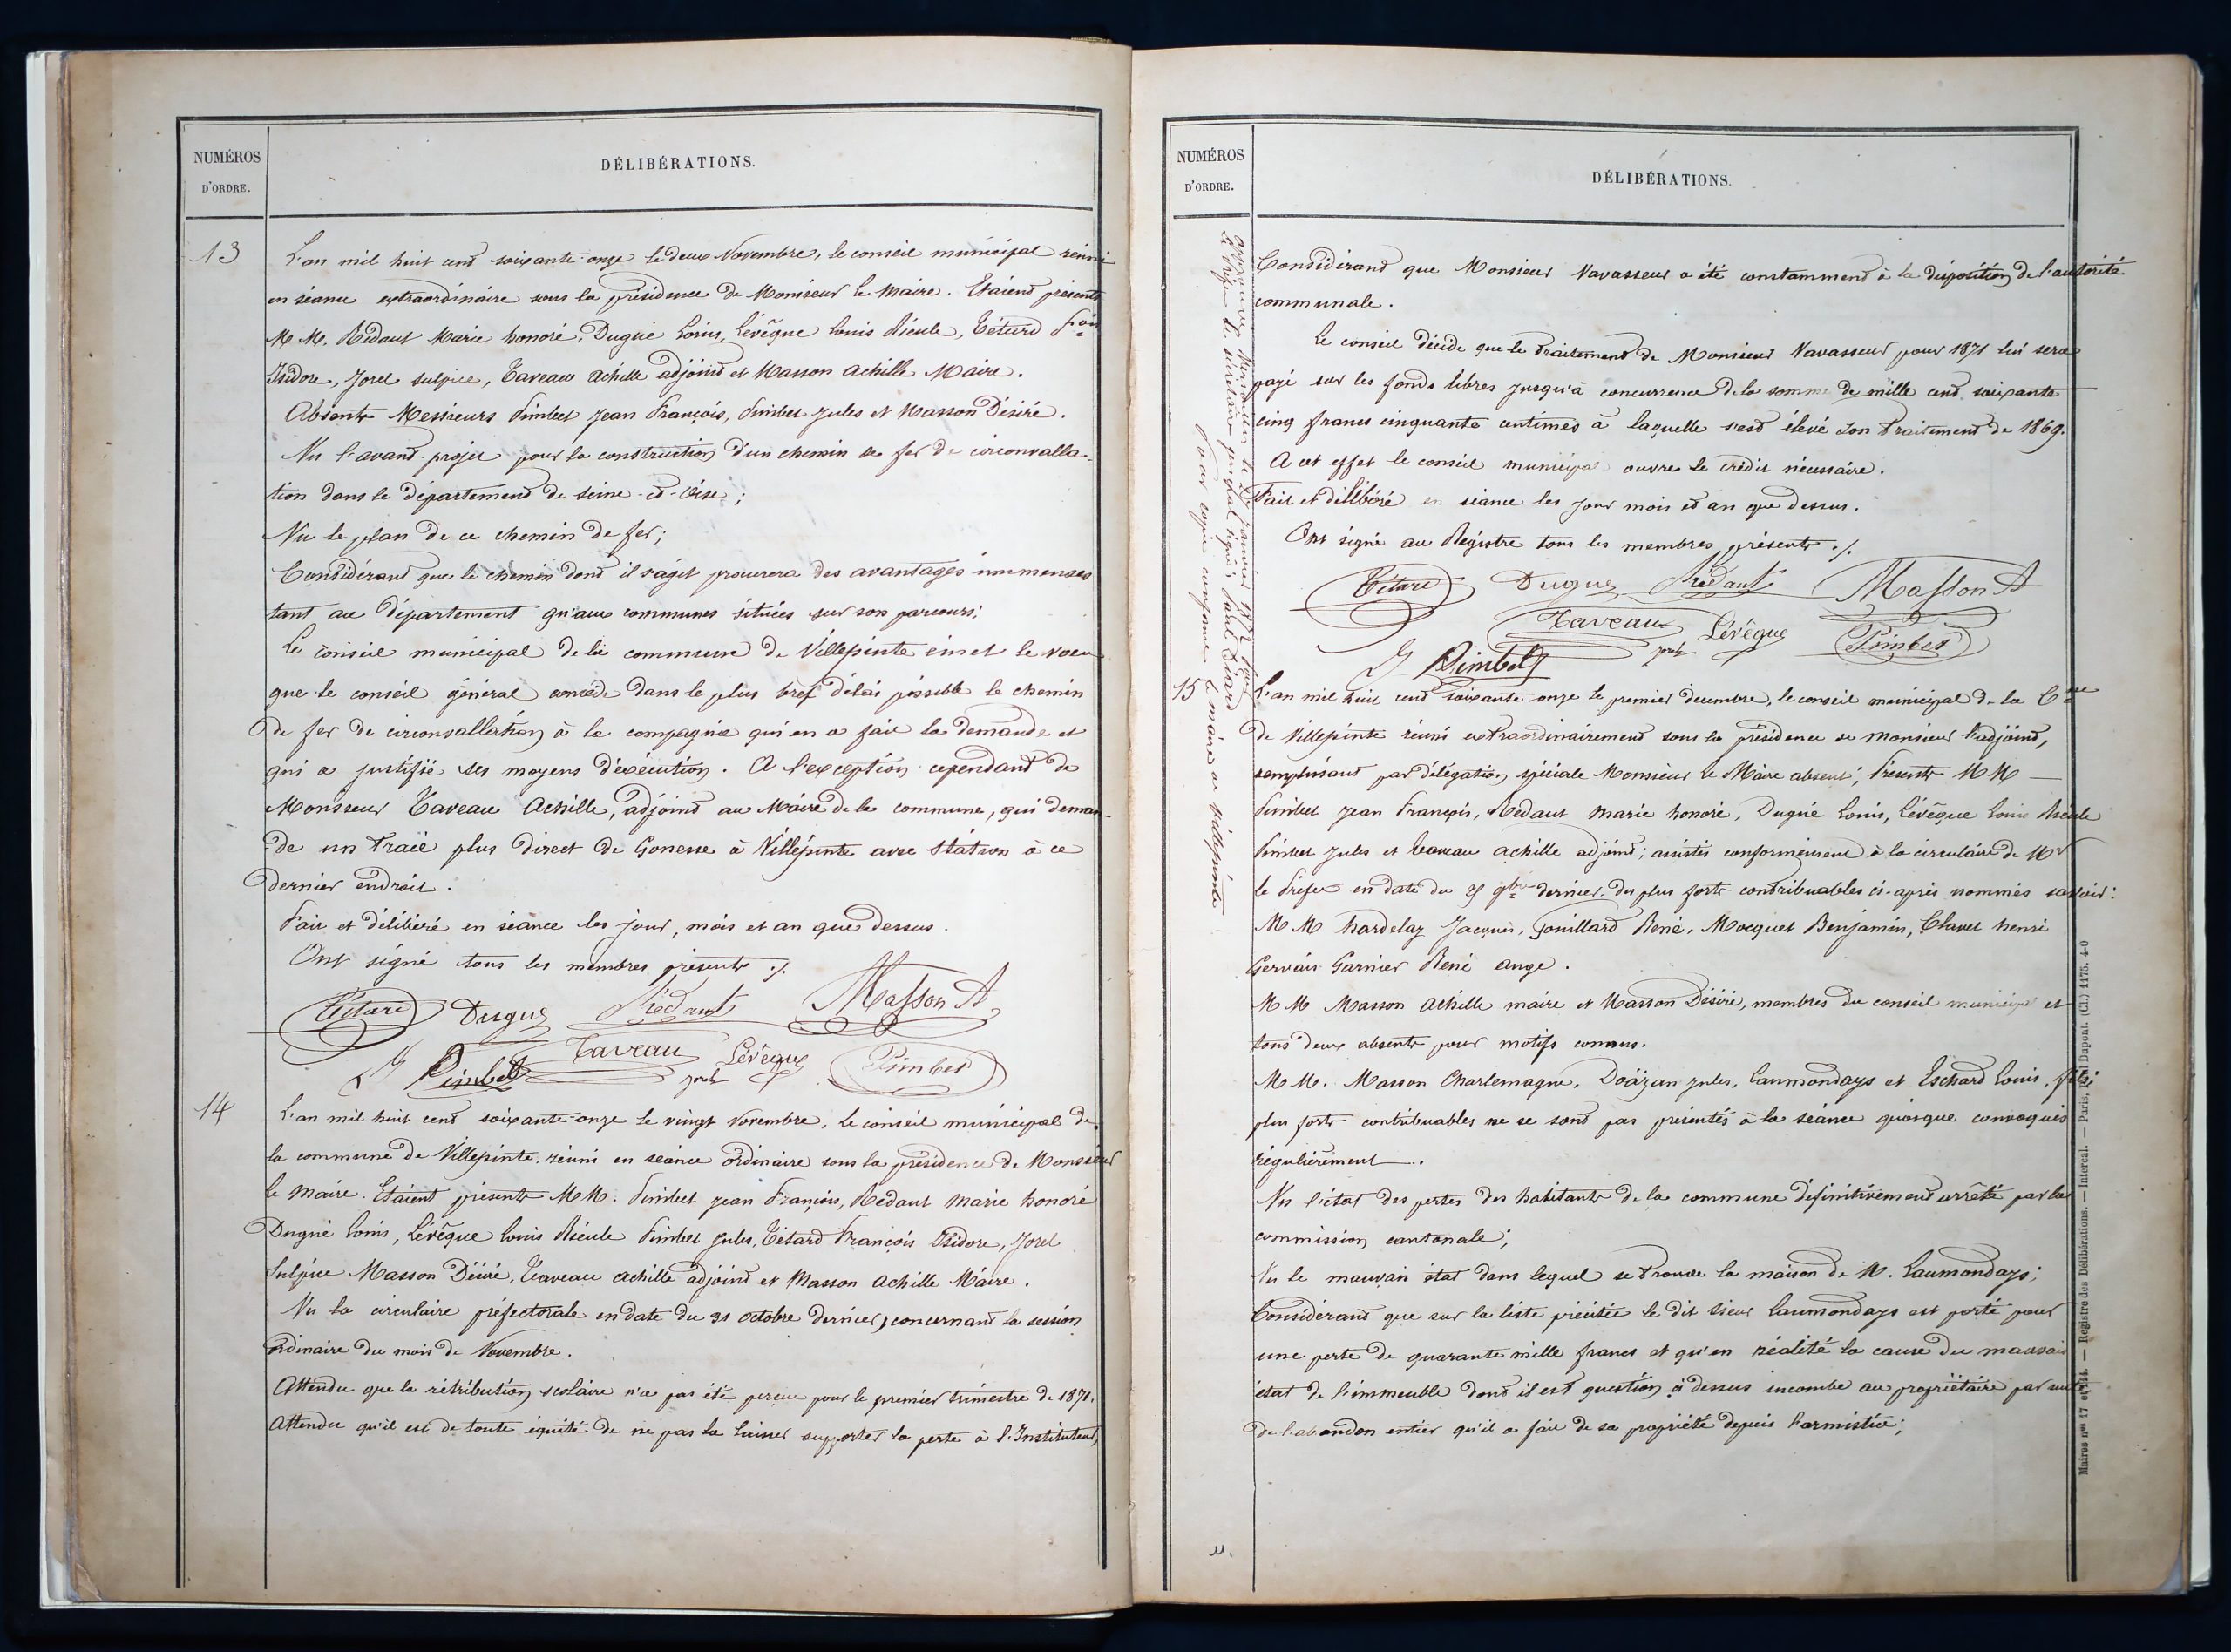 NUMÉROS
D'ORDRE.
DÉLIBÉRATIONS.
13
L'an mil huit cent soixante-onze le deux Novembre, le conseil municipal réuni
en séance extraordinaire sous la présidence de Monsieur le Maire. Etaient présents
M M. Rédaut Marie honoré, Dugué Louis, Lévêque Louis Rieule, Tétard Fçois
Isidore, Jorel sulpice, Taveau Achille adjoint et Masson Achille Maire.
Absents Messieurs Pimbet Jean François, Pimbet Jules et Masson Désiré.
Vu l'avant-projet pour la construction d'un chemin de fer de circonvalla-
tion dans le département de seine-et-Oise;
Vu le plan de ce chemin de fer;
Considérant que le chemin dont il s'agit procurera des avantages immenses
tant au département qu'aux communes situées sur son parcours;
Le conseil municipal de la commune de Villepinte émet le voeu
que le conseil général concède dans le plus bref délai possible le chemin
de fer de circonvallation à la compagnie qui en a fait la demande et
qui a justifié ses moyens d'exécution. A l'exception cependant de
Monsieur Taveau Achille, adjoint au Maire de la commune, qui deman-
de un tracé plus direct de Gonesse à Villepinte avec station à ce
dernier endroit.
Fait et délibéré en séance les jour, mois et an que dessus.
Ont signé tous les membres présents ./.
Tétard Dugué Rédaut Masson A
J Pimbet Taveau Jorel Lévêque Pimbet
14
L'an mil huit cent soixante-onze le vingt Novembre, le conseil municipal de
la commune de Villepinte, réuni en séance ordinaire sous la présidence de Monsieur
le Maire. Etaient présents M M. Pimbet Jean François, Rédaut Marie honoré
Dugué Louis, Lévêque Louis Rieule Pimbet Jules, Tétard François Isidore, Jorel
Sulpice Masson Désiré, Taveau Achille adjoint et Masson Achille Maire.
Vu la circulaire préfectorale en date du 31 octobre dernier, concernant la session
ordinaire du mois de Novembre.
Attendu que la rétribution scolaire n'a pas été perçue pour le premier trimestre de 1871.
Attendu qu'il est de toute équité de ne pas la laisser supporter la perte à l'Instituteur,
NUMÉROS
D'ORDRE.
DÉLIBÉRATIONS.
Considérant que Monsieur Vavasseur a été constamment à la disposition de l'autorité
communale.
Le conseil décide que le traitement de Monsieur Vavasseur pour 1871 lui sera
payé sur les fonds libres jusqu'à concurrence de la somme de mille cent soixante
cinq francs cinquante centimes à laquelle s'est élevé son traitement de 1869.
A cet effet le conseil municipal ouvre le crédit nécessaire.
Fait et délibéré en séance les jour mois et an que dessus.
Ont signé au Régistre tous les membres présents ./.
Tétard Dugué Rédaut Masson A
J Pimbet Taveau Jorel Lévêque Pimbet
15
L'an mil huit cent soixante-onze le premier décembre, le conseil municipal de la Cne
de Villepinte réuni extraordinairement sous la présidence de Monsieur l'adjoint,
remplissant par délégation spéciale Monsieur le Maire absent; Présents M M
Pimbet Jean François, Rédaut Marie honoré, Dugué Louis, Lévêque Louis Rieule
Pimbet Jules et Taveau Achille adjoint; assistés conformément à la circulaire de Mr
le Préfet en date du 25 9bre dernier des plus forts contribuables ci-après nommés savoir:
M M hardelay Jacques, Jouillard René, Mocquet Benjamin, Clavet henri
Gervais Garnier René ange.
M M Masson Achille maire et Masson Désiré, membres du conseil municipal et
tous deux absents pour motifs connus.
M M. Masson Charlemagne, Doäzan Jules, Laumondays et Eschard Louis,
plus forts contribuables ne se sont pas présentés à la séance quoique convoqués
régulièrement.
Vu l'état des pertes des habitants de la commune définitivement arrêté par la
commission cantonale;
Vu le mauvais état dans lequel se trouve la maison de M. Laumondays;
Considérant que sur la liste précitée le dit sieur Laumondays est porté pour
une perte de quarante mille francs et qu'en réalité la cause du mauvais
état de l'immeuble dont il est question ci dessus incombe au propriétaire par suite
de l'abandon entier qu'il a fait de sa propriété depuis l'armistice;
Le secrétaire général signé, Paul Diard
Pour copie conforme le maire de Villepinte
11.
Maires nos 17 et 114. — Registre des Délibérations. — Intercal. — Paris, Paul Dupont. (Cl.) 1175. 4-0